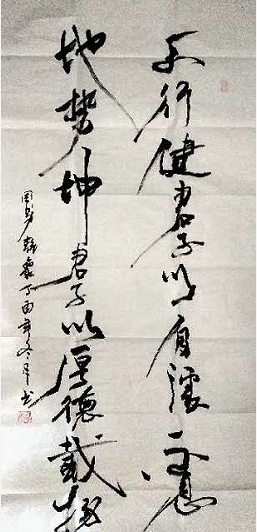 天行健君子以自强不息
地势坤君子以厚德载物
周易 丁酉年冬月 书